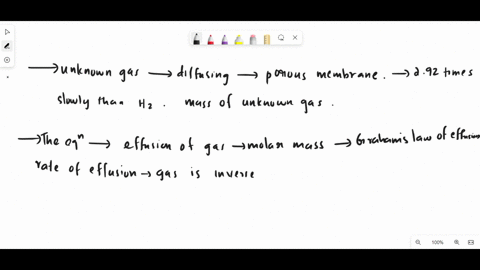 → unknown gas → diffusing → porous membrane. → 2.92 times
slowly than H2. mass of unknown gas.
→ The eqn → effusion of gas → molar mass → Graham's law of effusion
rate of effusion → gas is inverse
100%